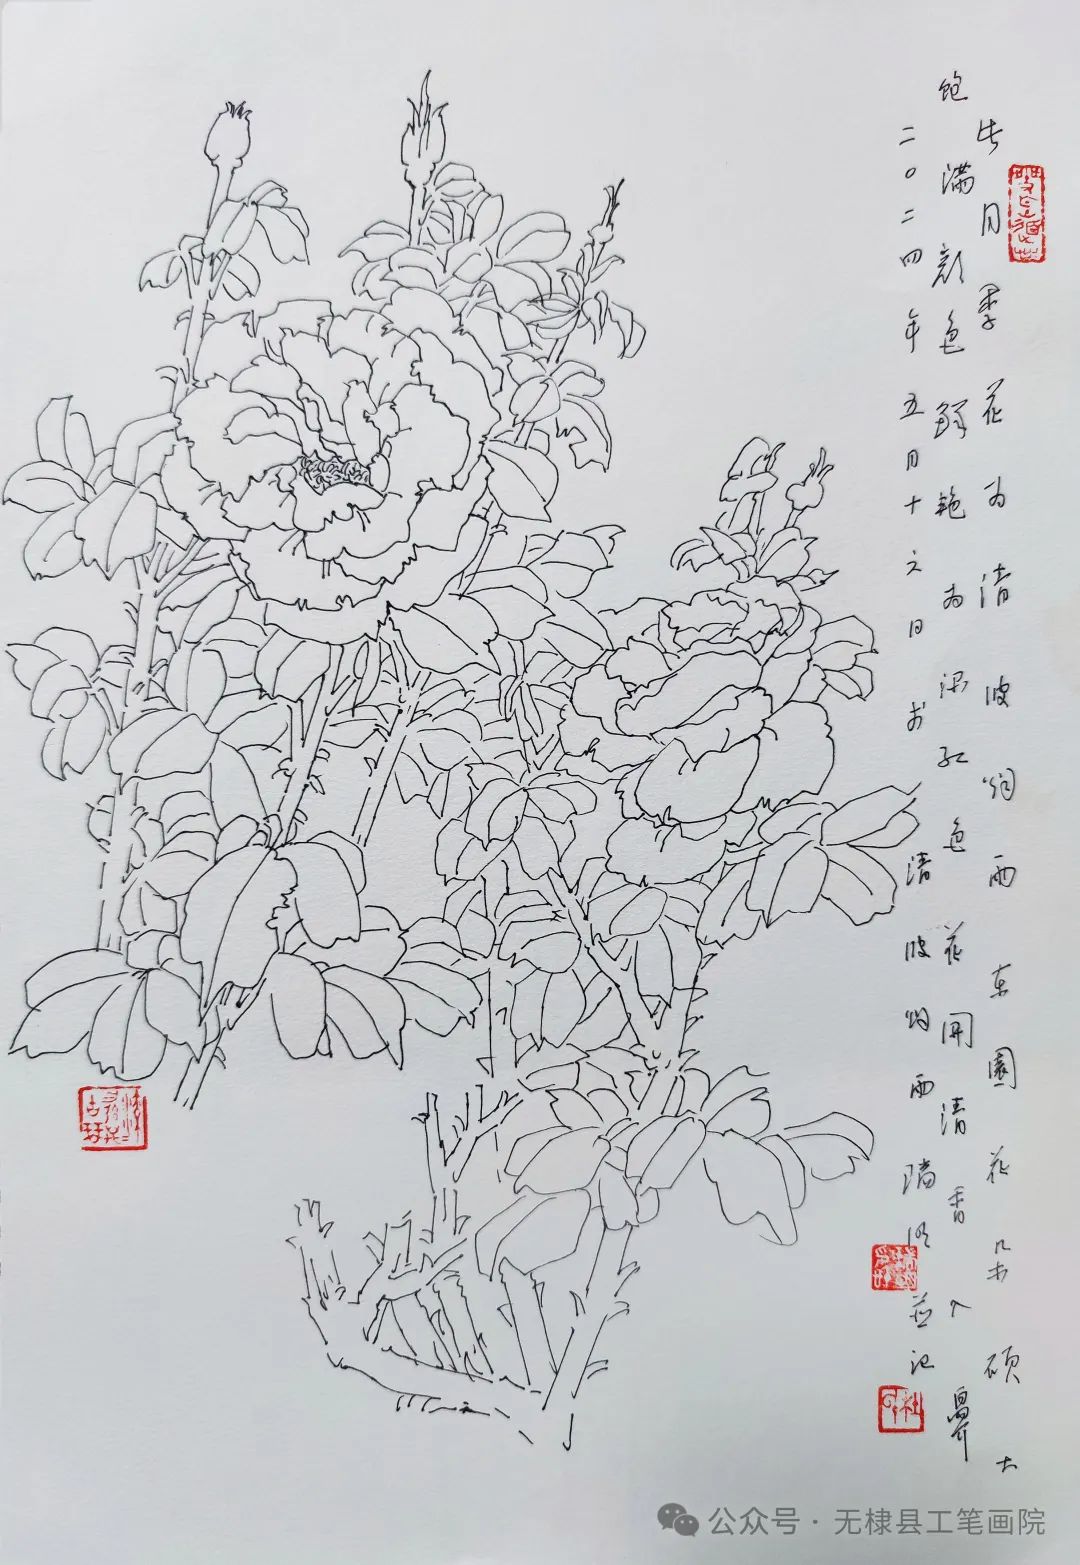 此月季花为清波烟雨东园花朵硕大
饱满颜色鲜艳为深红色花开清香入鼻
二〇二四年五月十六日
清波烟雨 并记
公众号 · 无棣县工笔画院